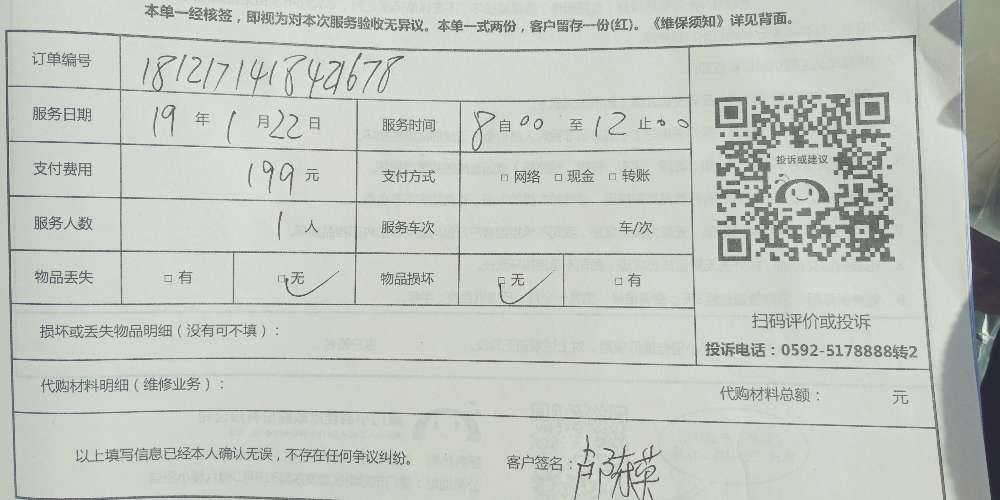 本单一经核签，即视为对本次服务验收无异议。本单一式两份，客户留存一份(红)。《维保须知》详见背面。
订单编号 1812171418421678
服务日期 19 年 1 月 22 日 服务时间 8 自 00 至 12 止 00
支付费用 199 元 支付方式 □ 网络 □ 现金 □ 转账
投诉或建议
服务人数 1 人 服务车次 车/次
物品丢失 □ 有 □ 无 物品损坏 □ 无 □ 有
扫码评价或投诉
损坏或丢失物品明细（没有可不填）：
投诉电话：0592-5178888转2
代购材料明细（维修业务）： 代购材料总额： 元
以上填写信息已经本人确认无误，不存在任何争议纠纷。 客户签名：